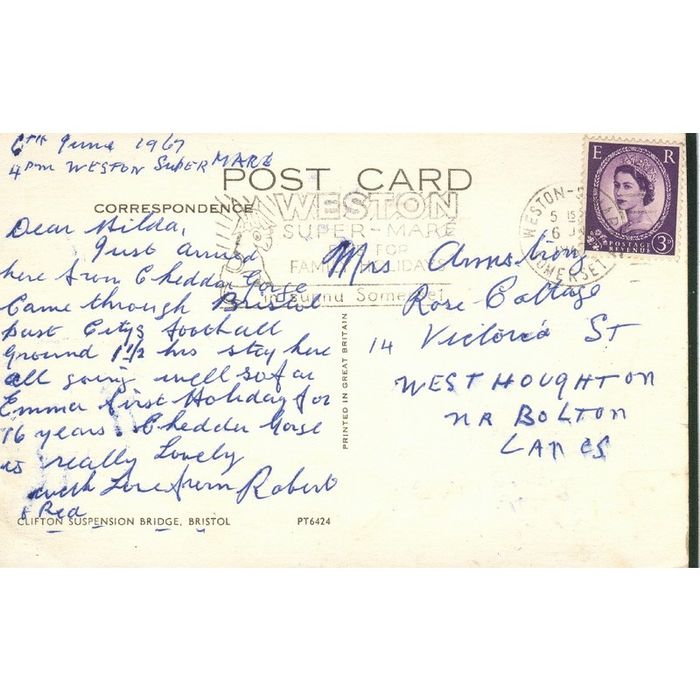 6TH June 1967
4pm WESTON SUPER MARE
POST CARD
CORRESPONDENCE
WESTON
SUPER-MARE
FOR
FAMILY HOLIDAYS
in sunny Somerset
WESTON-S
5 15
6 J
SOMERSET
E R
POSTAGE REVENUE
3D
Dear Hilda,
Just arrived
here from Cheddar Gorse
Came through Bristol
past Citys football
Ground 1 1/2 hrs stay here
all going well so far
Emma first Holiday for
16 years. Chedder Gorse
is really Lovely
with Love from Robert
& Red
Mrs Armstrong
Rose-Cottage
14 Victoria St
WEST HOUGHTON
NR BOLTON
LANCS
PRINTED IN GREAT BRITAIN
CLIFTON SUSPENSION BRIDGE, BRISTOL PT6424